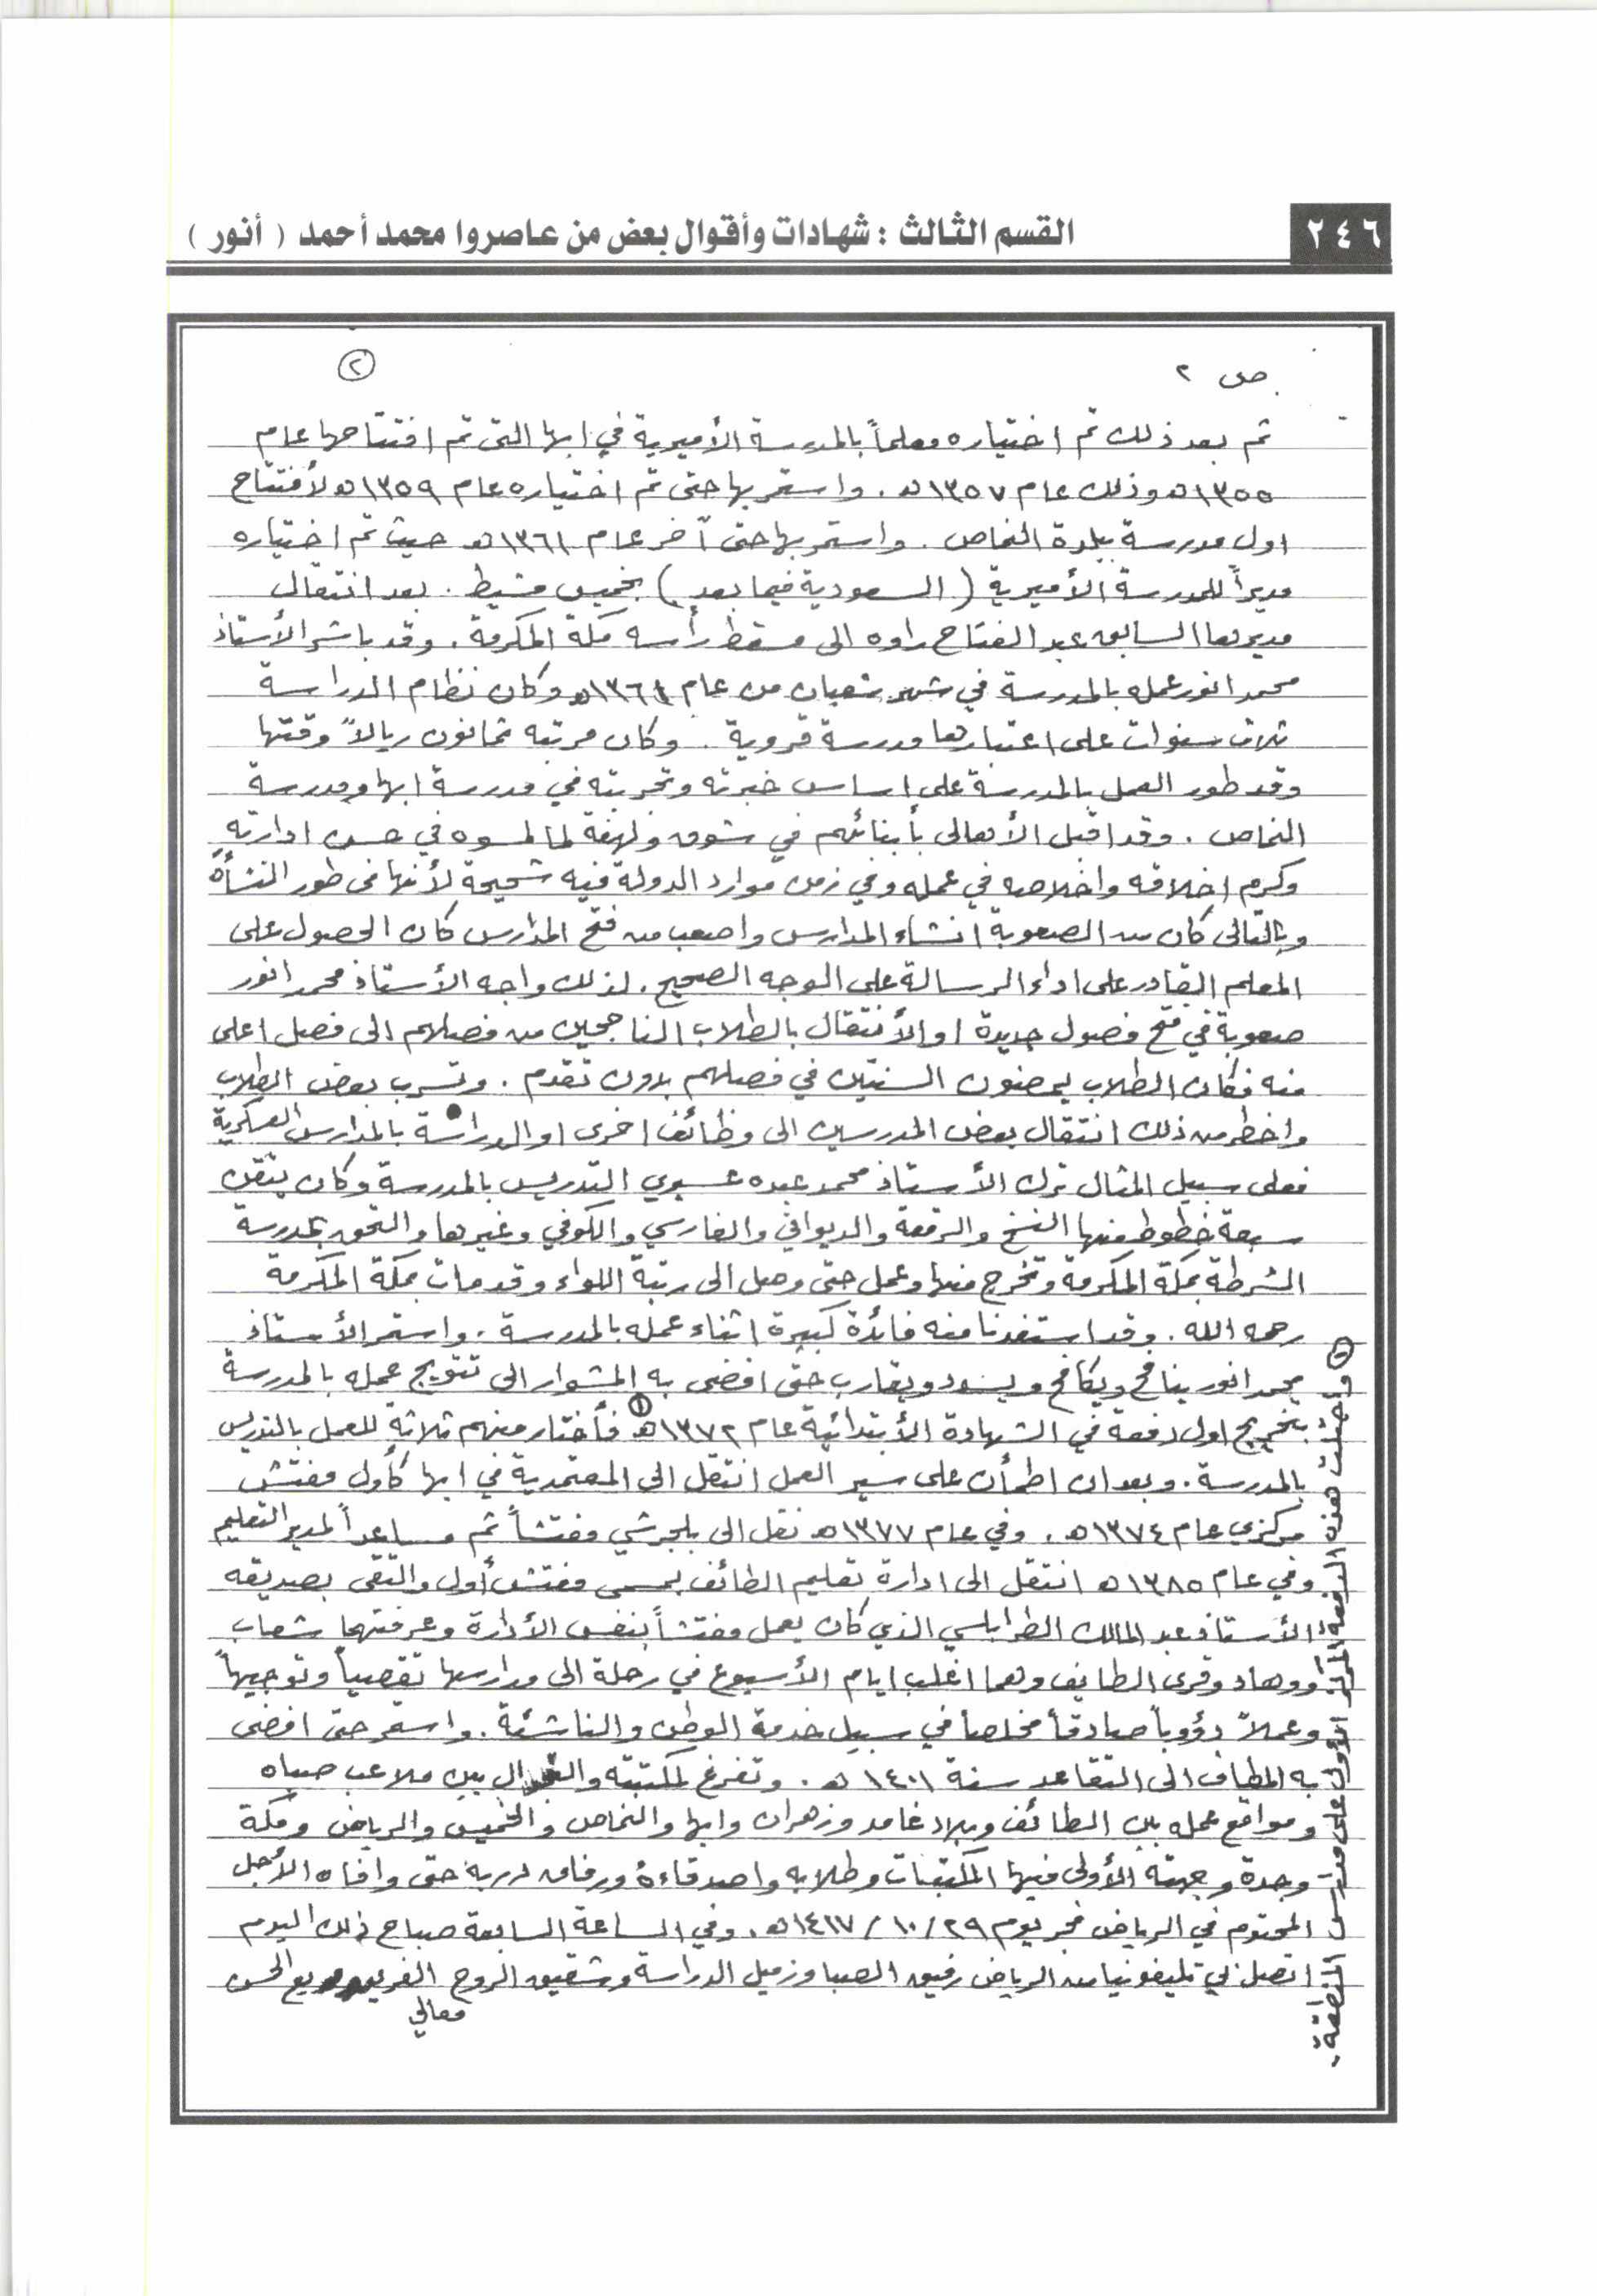 ٢٤٦
القسم الثالث : شهادات وأقوال بعض من عاصروا محمد أحمد ( أنور )
ص ٢
٢
ثم بعد ذلك تم اختياره معلماً بالمدرسة الأميرية في ابها التي تم افتتاحها عام
١٣٥٥هـ وذلك عام ١٣٥٧هـ . واستمر بها حتى تم اختياره عام ١٣٥٩هـ لأفتتاح
اول مدرسة ببلدة النماص . واستمر بها حتى آخر عام ١٣٦١هـ حيث تم اختياره
مديراً للمدرسة الأميرية ( السعودية فيما بعد ) بخميس مشيط . بعد انتقال
مديرها السابق عبد الفتاح راوه الى مسقط رأسه مكة المكرمة . وقد باشر الأستاذ
محمد انور عمله بالمدرسة في شهر شعبان من عام ١٣٦١هـ وكان نظام الدراسة
ثلاث سنوات على اعتبارها مدرسة قروية . وكان مرتبه ثمانون ريالاً وقتها
وقد طور العمل بالمدرسة على اساس خبرته وتجربته في مدرسة ابها ومدرسة
النماص . وقد اقبل الأهالى بأبنائهم في شوق ولهفة لما لمسوه في حسن ادارته
وكرم اخلاقه واخلاصه في عمله وفي زمن موارد الدولة فيه شحيحة لأنها في طور النشأة
وبالتالى كان من الصعوبة انشاء المدارس واصعب من فتح المدارس كان الحصول على
المعلم القادر على اداء الرسالة على الوجه الصحيح . لذلك واجه الأستاذ محمد انور
صعوبة في فتح فصول جديدة او الأنتقال بالطلاب الناجحين من فصلهم الى فصل اعلى
منه فكان الطلاب يمضون السنتين في فصلهم بدون تقدم . وتسرب بعض الطلاب
واخطر من ذلك انتقال بعض المدرسين الى وظائف اخرى او الدراسة بالمدارس العسكرية
فعلى سبيل المثال ترك الأستاذ محمد عبده عسيري التدريس بالمدرسة وكان يتقن
سبعة خطوط منها النسخ والرقعة والديواني والفارسي والكوفي وغيرها والتحق بمدرسة
الشرطة بمكة المكرمة وتخرج منها وعمل حتى وصل الى رتبة اللواء وقد مات بمكة المكرمة
رحمه الله . وقد استفدنا منه فائدة كبيرة اثناء عمله بالمدرسة . واستمر الأستاذ
محمد انور ينافح ويكافح ويسدد ويقارب حتى افضى به المشوار الى تتويج عمله بالمدرسة
بتخريج اول دفعة في الشهادة الأبتدائية عام ١٣٧٢هـ (١) فأختار منهم ثلاثة للعمل بالتدريس
بالمدرسة . وبعد ان اطمأن على سير العمل انتقل الى المعتمدية في ابها كأول مفتش
مركزي عام ١٣٧٤هـ . وفي عام ١٣٧٧هـ نقل الى بلجرشي مفتشاً ثم مساعداً لمدير التعليم
وفي عام ١٣٨٥هـ انتقل الى ادارة تعليم الطائف بمسمى مفتش أول والتقى بصديقه
الأستاذ عبد المالك الطرابلسي الذي كان يعمل مفتشاً بنفس الأدارة وعرفتهما شعاب
ووهاد وقرى الطايف وهما اغلب ايام الأسبوع في رحلة الى مدارسها تقصياً وتوجيهاً
وعملاً دؤوباً صادقاً مخلصاً في سبيل خدمة الوطن والناشئة . واستمر حتى افضى
به المطاف الى التقاعد سنة ١٤٠١هـ . وتفرغ لمكتبته والتجوال بين ملاعب صباه
ومواقع عمله بين الطائف وبلاد غامد وزهران وابها والنماص والخميس والرياض ومكة
وجدة وجهته الأولى فيها المكتبات وطلابه واصدقاءه ورفاق دربه حتى وافاه الأجل
المحتوم في الرياض فجر يوم ٢٩/ ١٠/ ١٤١٧هـ . وفي الساعة السابعة صباح ذلك اليوم
اتصل بي تليفونيا من الرياض رفيق الصبا وزميل الدراسة وشقيق الروح الفريق يع الحسن
معالي
(١) وأصبحت هذه الدفعة المركز الأولى على مدارس المنطقة .